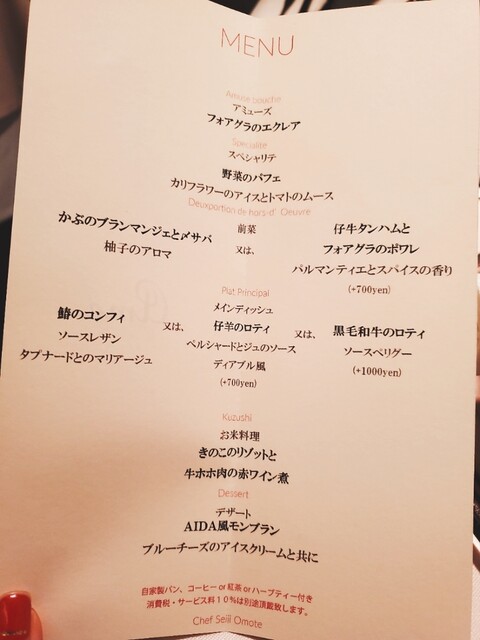 MENU
Amuse bouche
アミューズ
フォアグラのエクレア
Spécialité
スペシャリテ
野菜のパフェ
カリフラワーのアイスとトマトのムース
Deuxportion de hors-d'Oeuvre
前菜
かぶのブランマンジェと〆サバ
柚子のアロマ
又は、
仔牛タンハムと
フォアグラのポワレ
パルマンティエとスパイスの香り
(+700yen)
Plat Principal
メインディッシュ
鰆のコンフィ
ソースレザン
タプナードとのマリアージュ
又は、
仔羊のロティ
ペルシャードとジュのソース
ディアブル風
(+700yen)
又は、
黒毛和牛のロティ
ソースペリグー
(+1000yen)
Kuzushi
お米料理
きのこのリゾットと
牛ホホ肉の赤ワイン煮
Dessert
デザート
AIDA風モンブラン
ブルーチーズのアイスクリームと共に
自家製パン、コーヒー or 紅茶 or ハーブティー付き
消費税・サービス料10%は別途頂戴致します。
Chef Seiji Omote